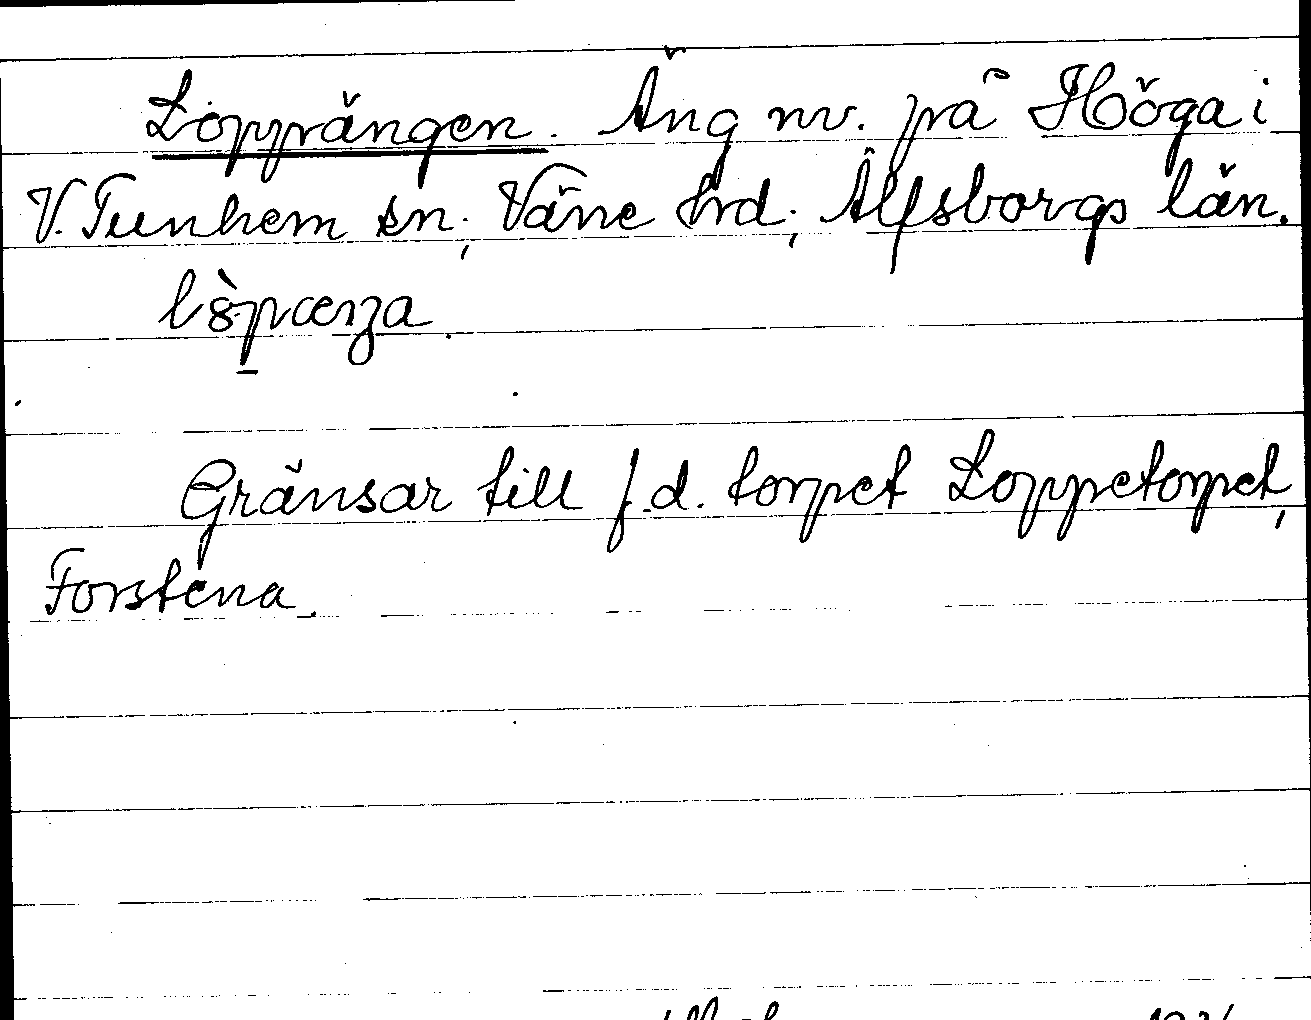 Loppängen. Äng nv. på Höga i
V. Tunhem sn; Väne hrd; Älfsborgs län.
Gränsar till f.d. torpet Loppetorpet,
Forstena.